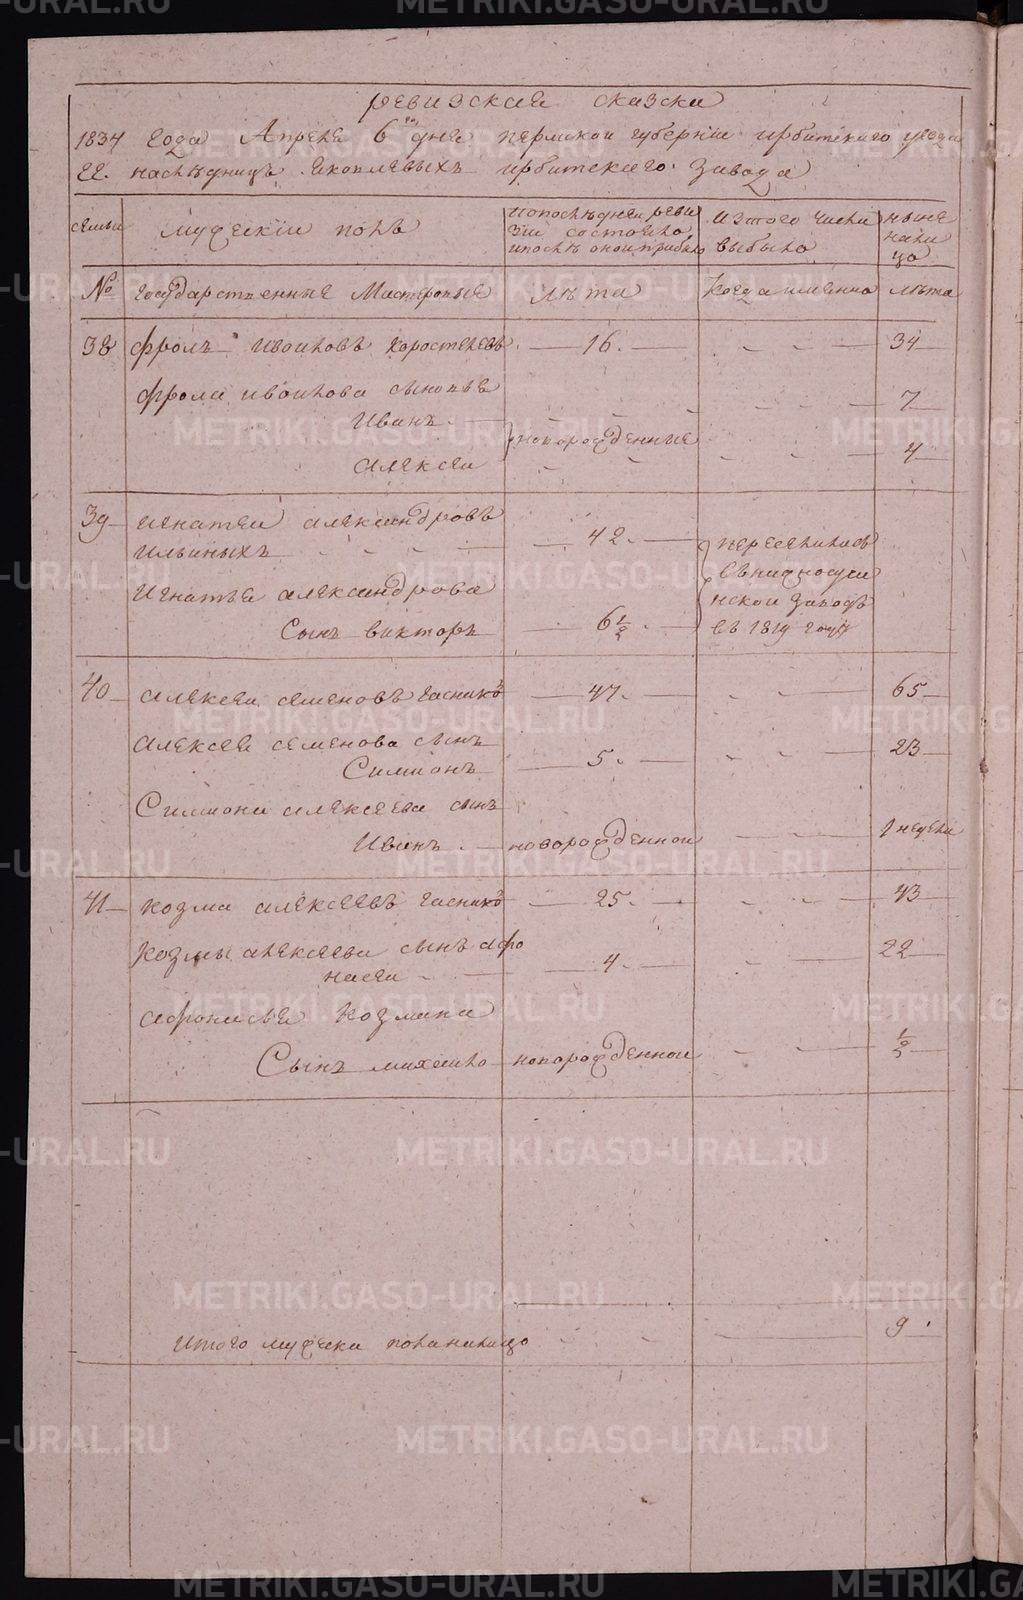 ревизские сказки
1834 года Апреля 6го дня пермской губернiи ирбитского уезда
ЕЕ. наслѣдницъ яковлевыхъ ирбитского завода
семьи
мужескiй полъ
попослѣдней реви
зiи состояло
ипослѣ оной прибыло
изтого числа
выбыло
ныне
нали
цо
№
государственные Мастеровые
лѣта
когда имянно
лѣта
38 фролъ ивановъ коростелевъ 16. 34
фрола иванова сыновья
Иванъ 7
новорожденные
алексей 4
39 игнатей александровъ
ильиныхъ 42
переселился
внижносусанской заводъ
въ 1819 году
Игнатья александрова
Сынъ викторъ 6 1/2
40 алексей семеновъ 47. 65
алексея семенова сынъ
Симионъ 5. 23
Симиона алексеева сынъ
Иванъ новорожденной 1 недели
41 козма алексеевъ 25. 43
Козмы алексеева сынъ афо
насей 4. 22
афонасья Козмина
Сынъ михайло новорожденной 1/2
итого мужеска пола налицо 9.
METRIKI.GASO-URAL.RU